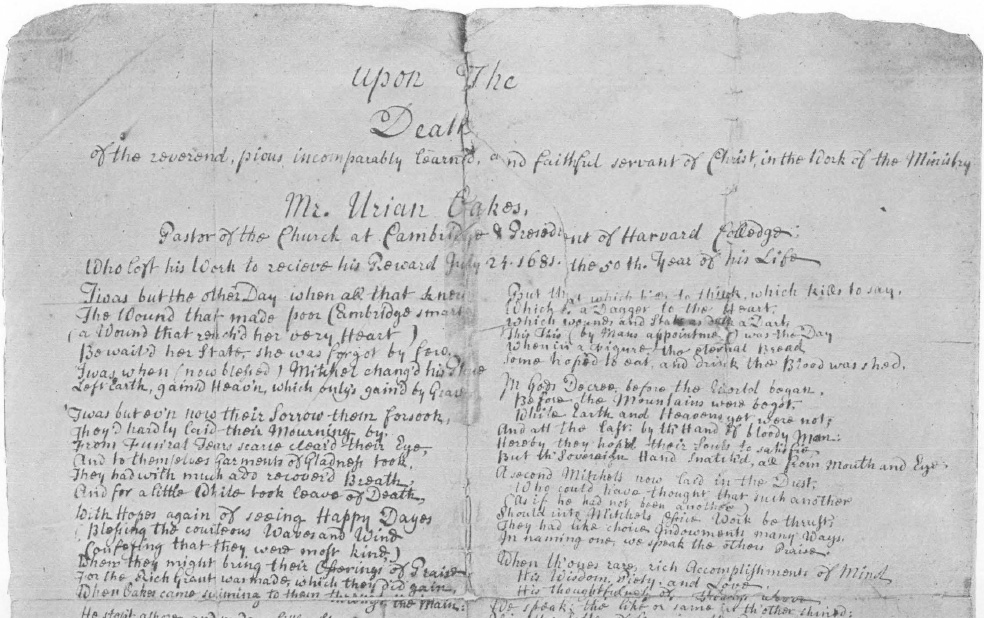 Upon The
Death
of the reverend, pious incomparably learned, and faithful servant of Christ, in the Work of the Ministry
Mr. Urian Oakes,
Pastor of the Church at Cambridge & President of Harvard Colledge:
Who left his Work to recieve his Reward July 24. 1681. the 50th. Year of his Life
Twas but the other Day when all that knew
The Wound that made poor Cambridge smart
(a Wound that reach'd her very Heart)
Bewail'd her State, she was forgot by few,
Twas when (now blessed) Mitchel chang'd his
Left Earth, gain'd Heav'n, which only's gain'd by
Twas but ev'n now their Sorrow them forsook,
They'd hardly laid their Mourning by.
From Funeral Tears scarce clear'd their Eye,
And to themselves Garments of Gladness took,
They had with much ado recover'd Breath,
And for a little While took leave of Death
With Hopes again of seeing Happy Dayes
(Blessing the courteous Waves and Wind
Confessing that they were most kind)
When they might bring their Offerings of Praise
For the Rich Grant was made, which they did gain,
When Oakes came swiming to them through the Main:
But that which to think, which kills to say,
Which a Danger to the Heart;
Which wounds and a Dart,
This This (by Mans appointment) was the Day
Wherein the eternal Bread
Some hoped to eat, and drink the Blood was shed.
In Gods Decree, before the World began,
Before the Mountains were begot,
While Earth and Heavens yet were not;
And att the last: by th' Hand of bloody Man:
Hereby they hop'd their Souls to satisfie
But th' Sovereign Hand Snatch'd, all from Mouth and Eye.
A second Mitchel's now laid in the Dust;
Who could have thought that such another
(As if he had not been another)
Should into Mitchels Work be thrust;
They had like choice Indowments many Ways.
In naming one, we speak the others Praise
When th'ones rare, rich Accomplishments of Mind
His Wisdom, Piety, and Love
His thoughtfulness of
We speak; the like or same in th'other shined: